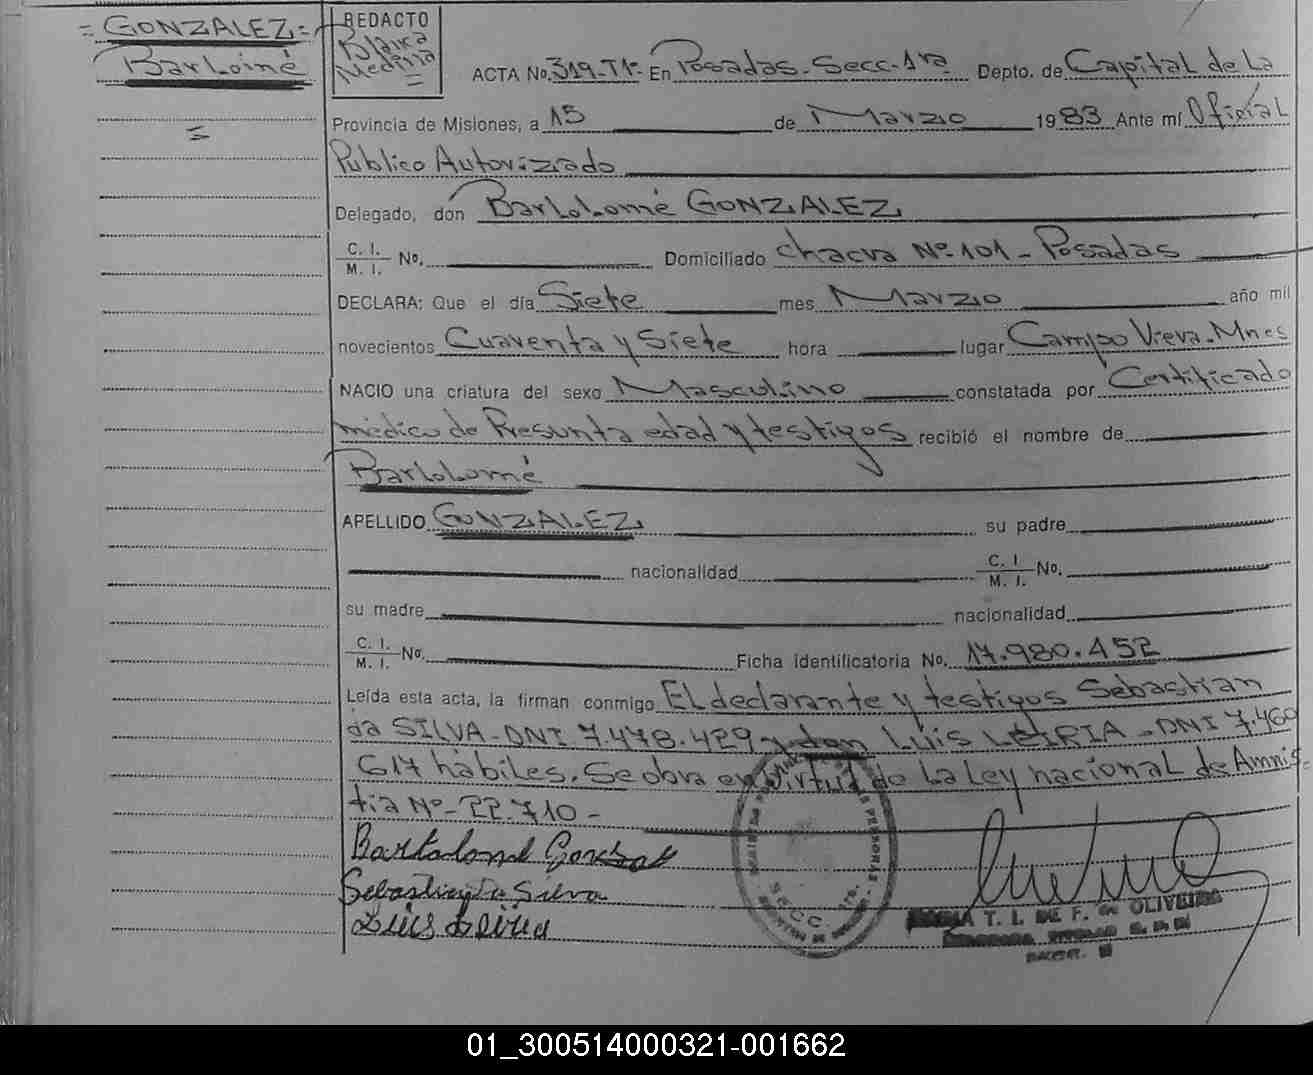 = GONZALEZ =
Bartolomé
=
REDACTO
Blanca
Medina
=
ACTA No. 319-T1- En Posadas-Secc-1ra Depto. de Capital de La
Provincia de Misiones, a 15 de Marzo 1983 Ante mí Oficial
Público Autorizado
Delegado, don Bartolomé GONZALEZ
C. I.
M. I. No. Domiciliado chacra Nº-101- Posadas
DECLARA: Que el día Siete mes Marzo año mil
novecientos Cuarenta y Siete hora lugar Campo Viera-Mnes
NACIO una criatura del sexo Masculino constatada por Certificado
médico de Presunta edad y testigos recibió el nombre de
Bartolomé
APELLIDO GONZALEZ su padre
nacionalidad C. I.
M. I. No.
su madre nacionalidad
C. I.
M. I. No. Ficha identificatoria No. 17.980.452
Leída esta acta, la firman conmigo El declarante y testigos Sebastian
da SILVA-DNI 7.478.429 y don Luis LEIRIA-DNI 7.460
617 hábiles. Se obra en virtud de La Ley nacional de Amnis-
tia Nº-22.710-
Bartolomé
Sebastian Da Silva
Luis Leiria
SECC. 1ra.
T. I. DE F. de OLIVEIRA